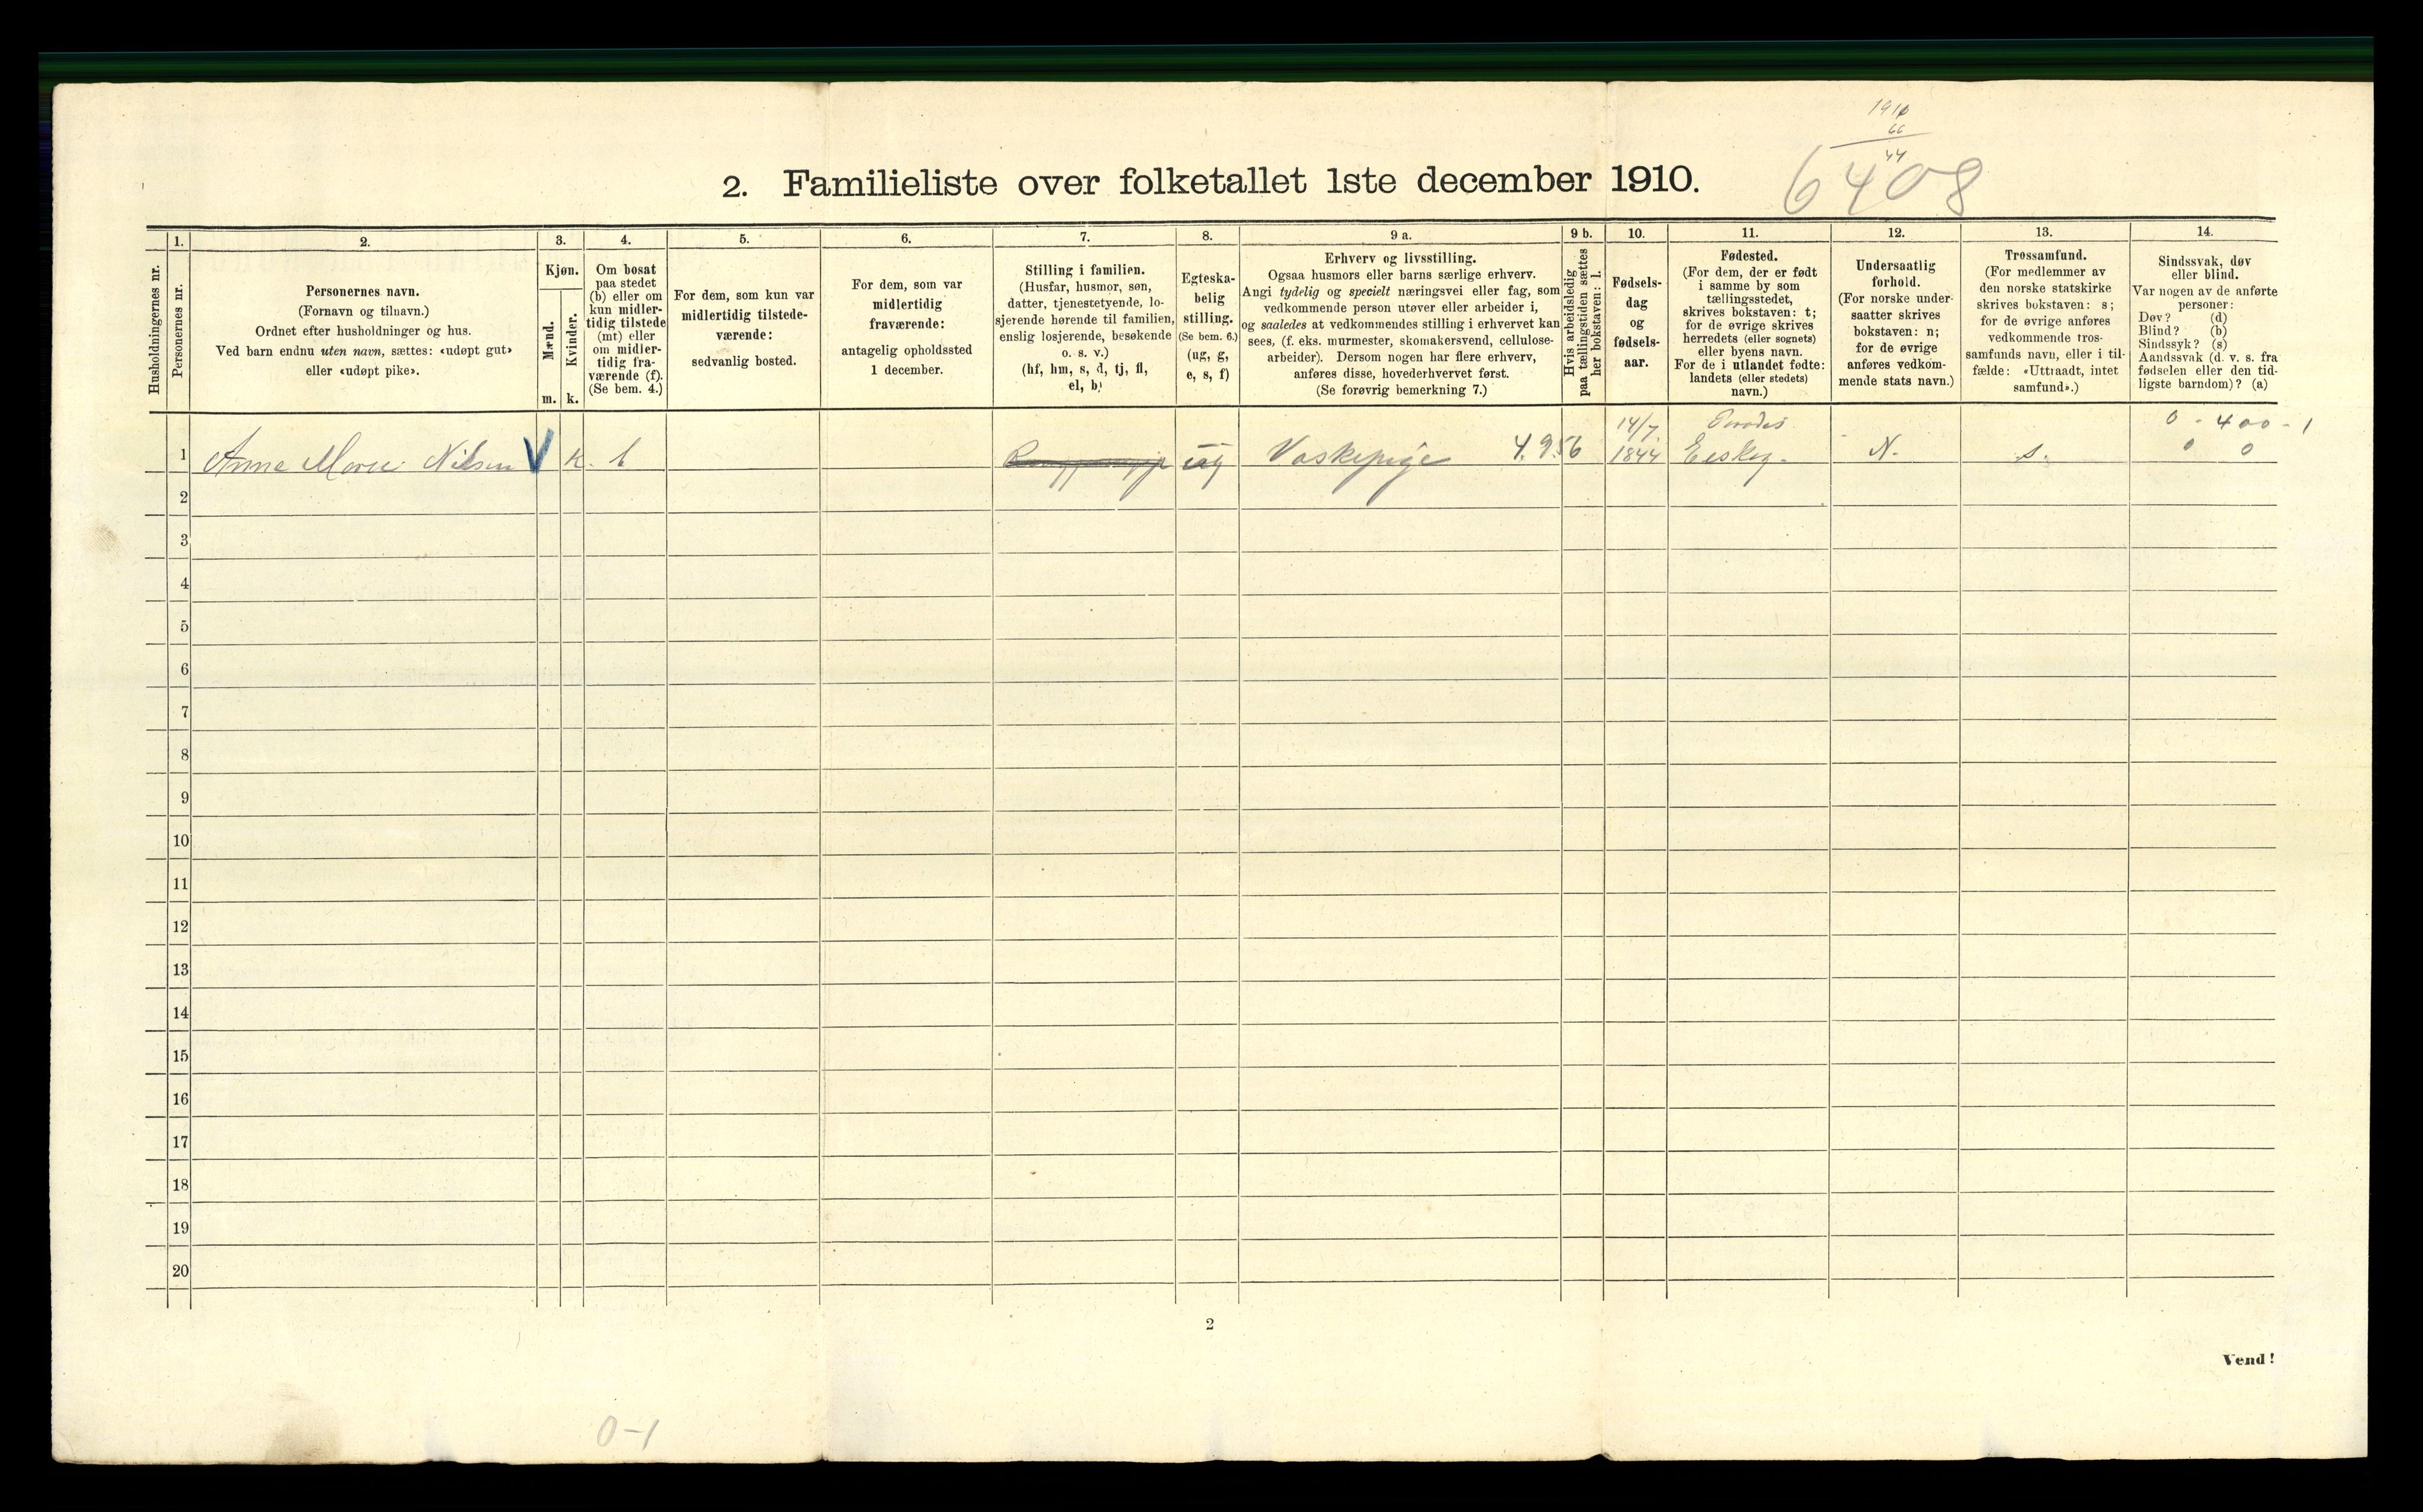 1910
66
44
6408
2. Familieliste over folketallet 1ste december 1910.
Husholdningernes nr.
1.
Personernes nr.
2.
Personernes navn.
(Fornavn og tilnavn.)
Ordnet efter husholdninger og hus.
Ved barn endnu uten navn, sættes: «udøpt gut»
eller «udøpt pike».
3.
Kjøn.
Mænd.
Kvinder.
m. k.
4.
Om bosat
paa stedet
(b) eller om
kun midler-
tidig tilstede
(mt) eller
om midler-
tidig fra-
værende (f).
(Se bem. 4.)
5.
For dem, som kun var
midlertidig tilstede-
værende:
sedvanlig bosted.
6.
For dem, som var
midlertidig
fraværende:
antagelig opholdssted
1 december.
7.
Stilling i familien.
(Husfar, husmor, søn,
datter, tjenestetyende, lo-
sjerende hørende til familien,
enslig losjerende, besøkende
o. s. v.)
(hf, hm, s, d, tj, fl,
el, b)
8.
Egteska-
belig
stilling.
(Se bem. 6.)
(ug, g,
e, s, f)
9 a.
Erhverv og livsstilling.
Ogsaa husmors eller barns særlige erhverv.
Angi tydelig og specielt næringsvei eller fag, som
vedkommende person utøver eller arbeider i,
og saaledes at vedkommendes stilling i erhvervet kan
sees, (f. eks. murmester, skomakersvend, cellulose-
arbeider). Dersom nogen har flere erhverv,
anføres disse, hovederhvervet først.
(Se forøvrig bemerkning 7.)
9 b.
Hvis arbeidsledig
paa tællingstiden sættes
her bokstaven: l.
10.
Fødsels-
dag
og
fødsels-
aar.
11.
Fødested.
(For dem, der er født
i samme by som
tællingsstedet,
skrives bokstaven: t;
for de øvrige skrives
herredets (eller sognets)
eller byens navn.
For de i utlandet fødte:
landets (eller stedets)
navn.)
12.
Undersaatlig
forhold.
(For norske under-
saatter skrives
bokstaven: n;
for de øvrige
anføres vedkom-
mende stats navn.)
13.
Trossamfund.
(For medlemmer av
den norske statskirke
skrives bokstaven: s;
for de øvrige anføres
vedkommende tros-
samfunds navn, eller i til-
fælde: «Uttraadt, intet
samfund».)
14.
Sindssvak, døv
eller blind.
Var nogen av de anførte
personer:
Døv? (d)
Blind? (b)
Sindssyk? (s)
Aandssvak (d. v. s. fra
fødselen eller den tid-
ligste barndom)? (a)
14/7. 0 - 400 - 1
1 Anne Marie Nilsen V K. b ug Vaskepige 4.956 1844 Eidskog. N. s. 0 0
2
3
4
5
6
7
8
9
10
11
12
13
14
15
16
17
18
19
20
2
Vend!
0-1